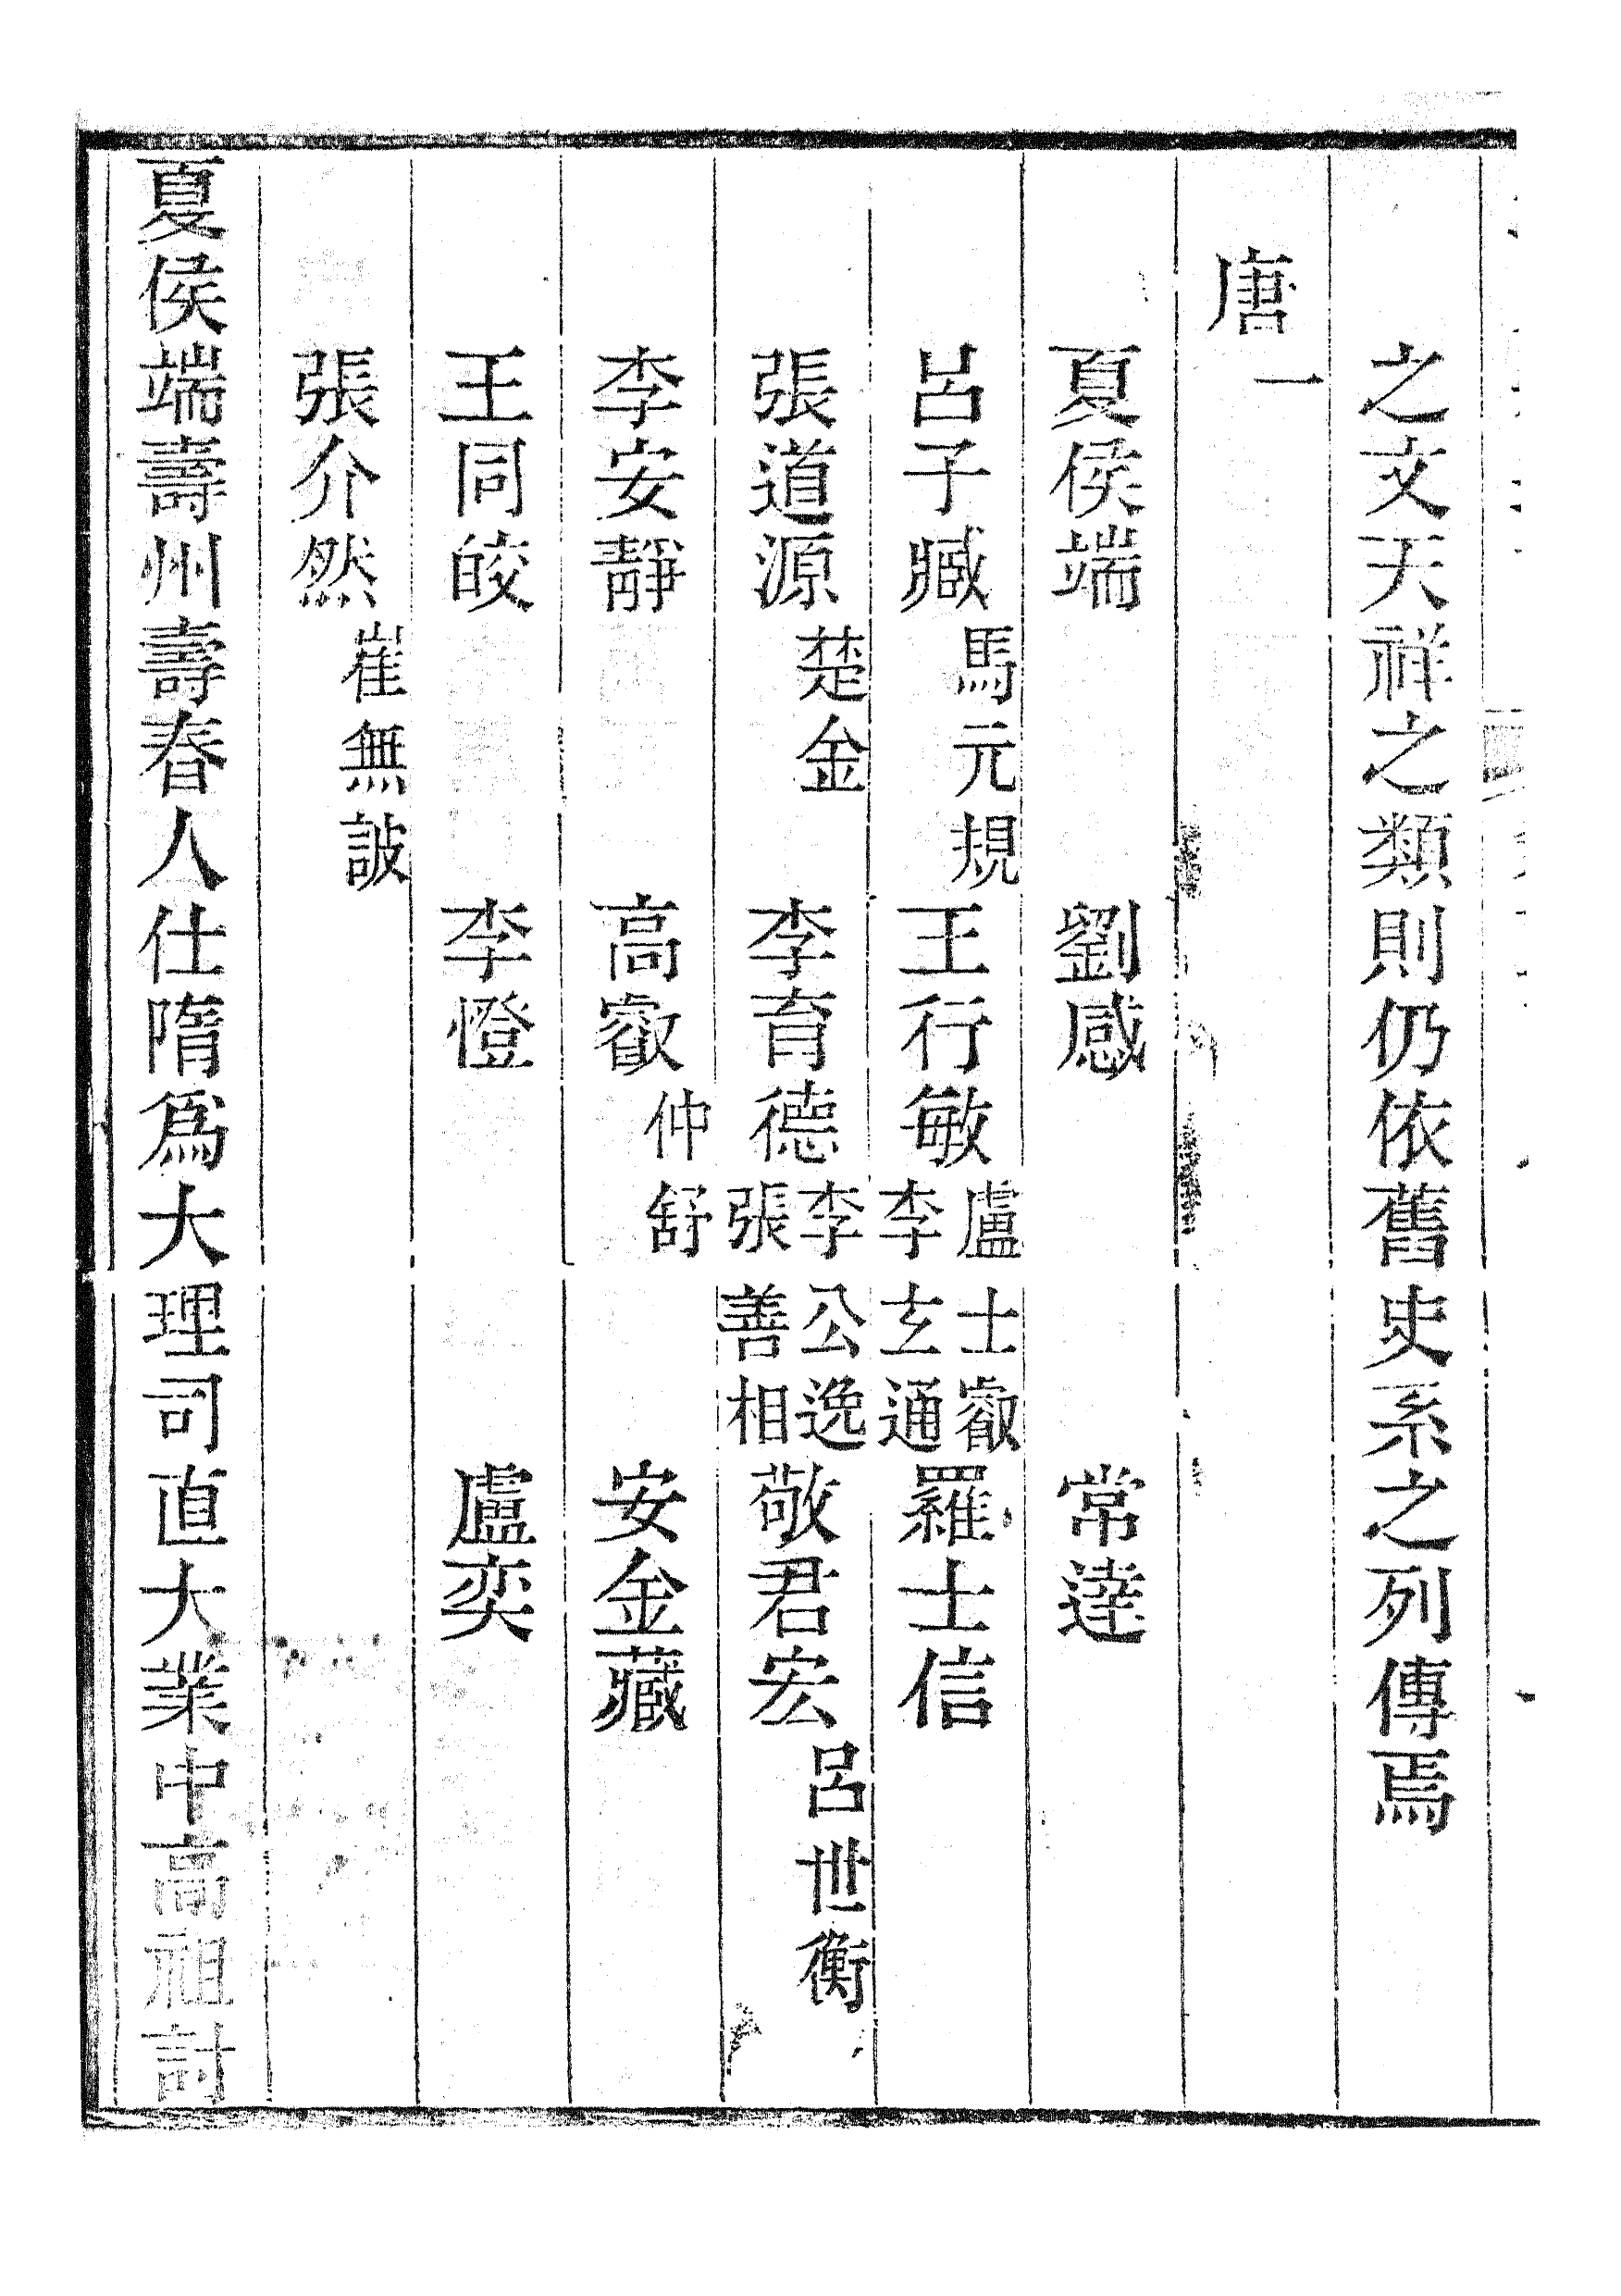 之文天祥之類則仍依舊史系之列傳焉
唐一
夏侯端 劉感 常達
呂子臧 馬元規 王行敏 盧士叡 李玄通 羅士信
張道源 楚金 李育德 李公逸 張善相 敬君宏 呂世衡
李安靜 高叡 仲舒 安金藏
王同皎 李憕 盧奕
張介然 崔無詖
夏侯端壽州壽春人仕隋爲大理司直大業中高祖討